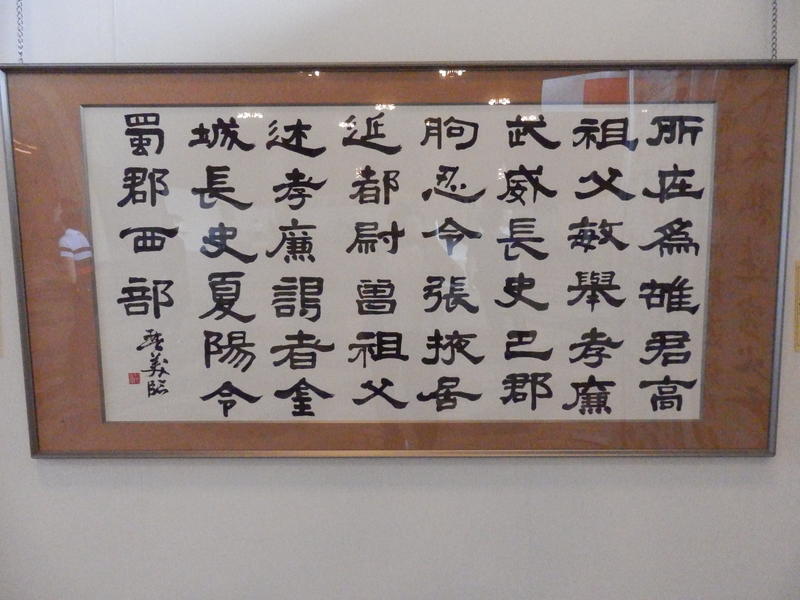 所在爲雄君高
祖父敏舉孝廉
武威長史巴郡
朐忍令張掖居
延都尉曾祖父
述孝廉謁者金
城長史夏陽令
蜀郡西部
美臨